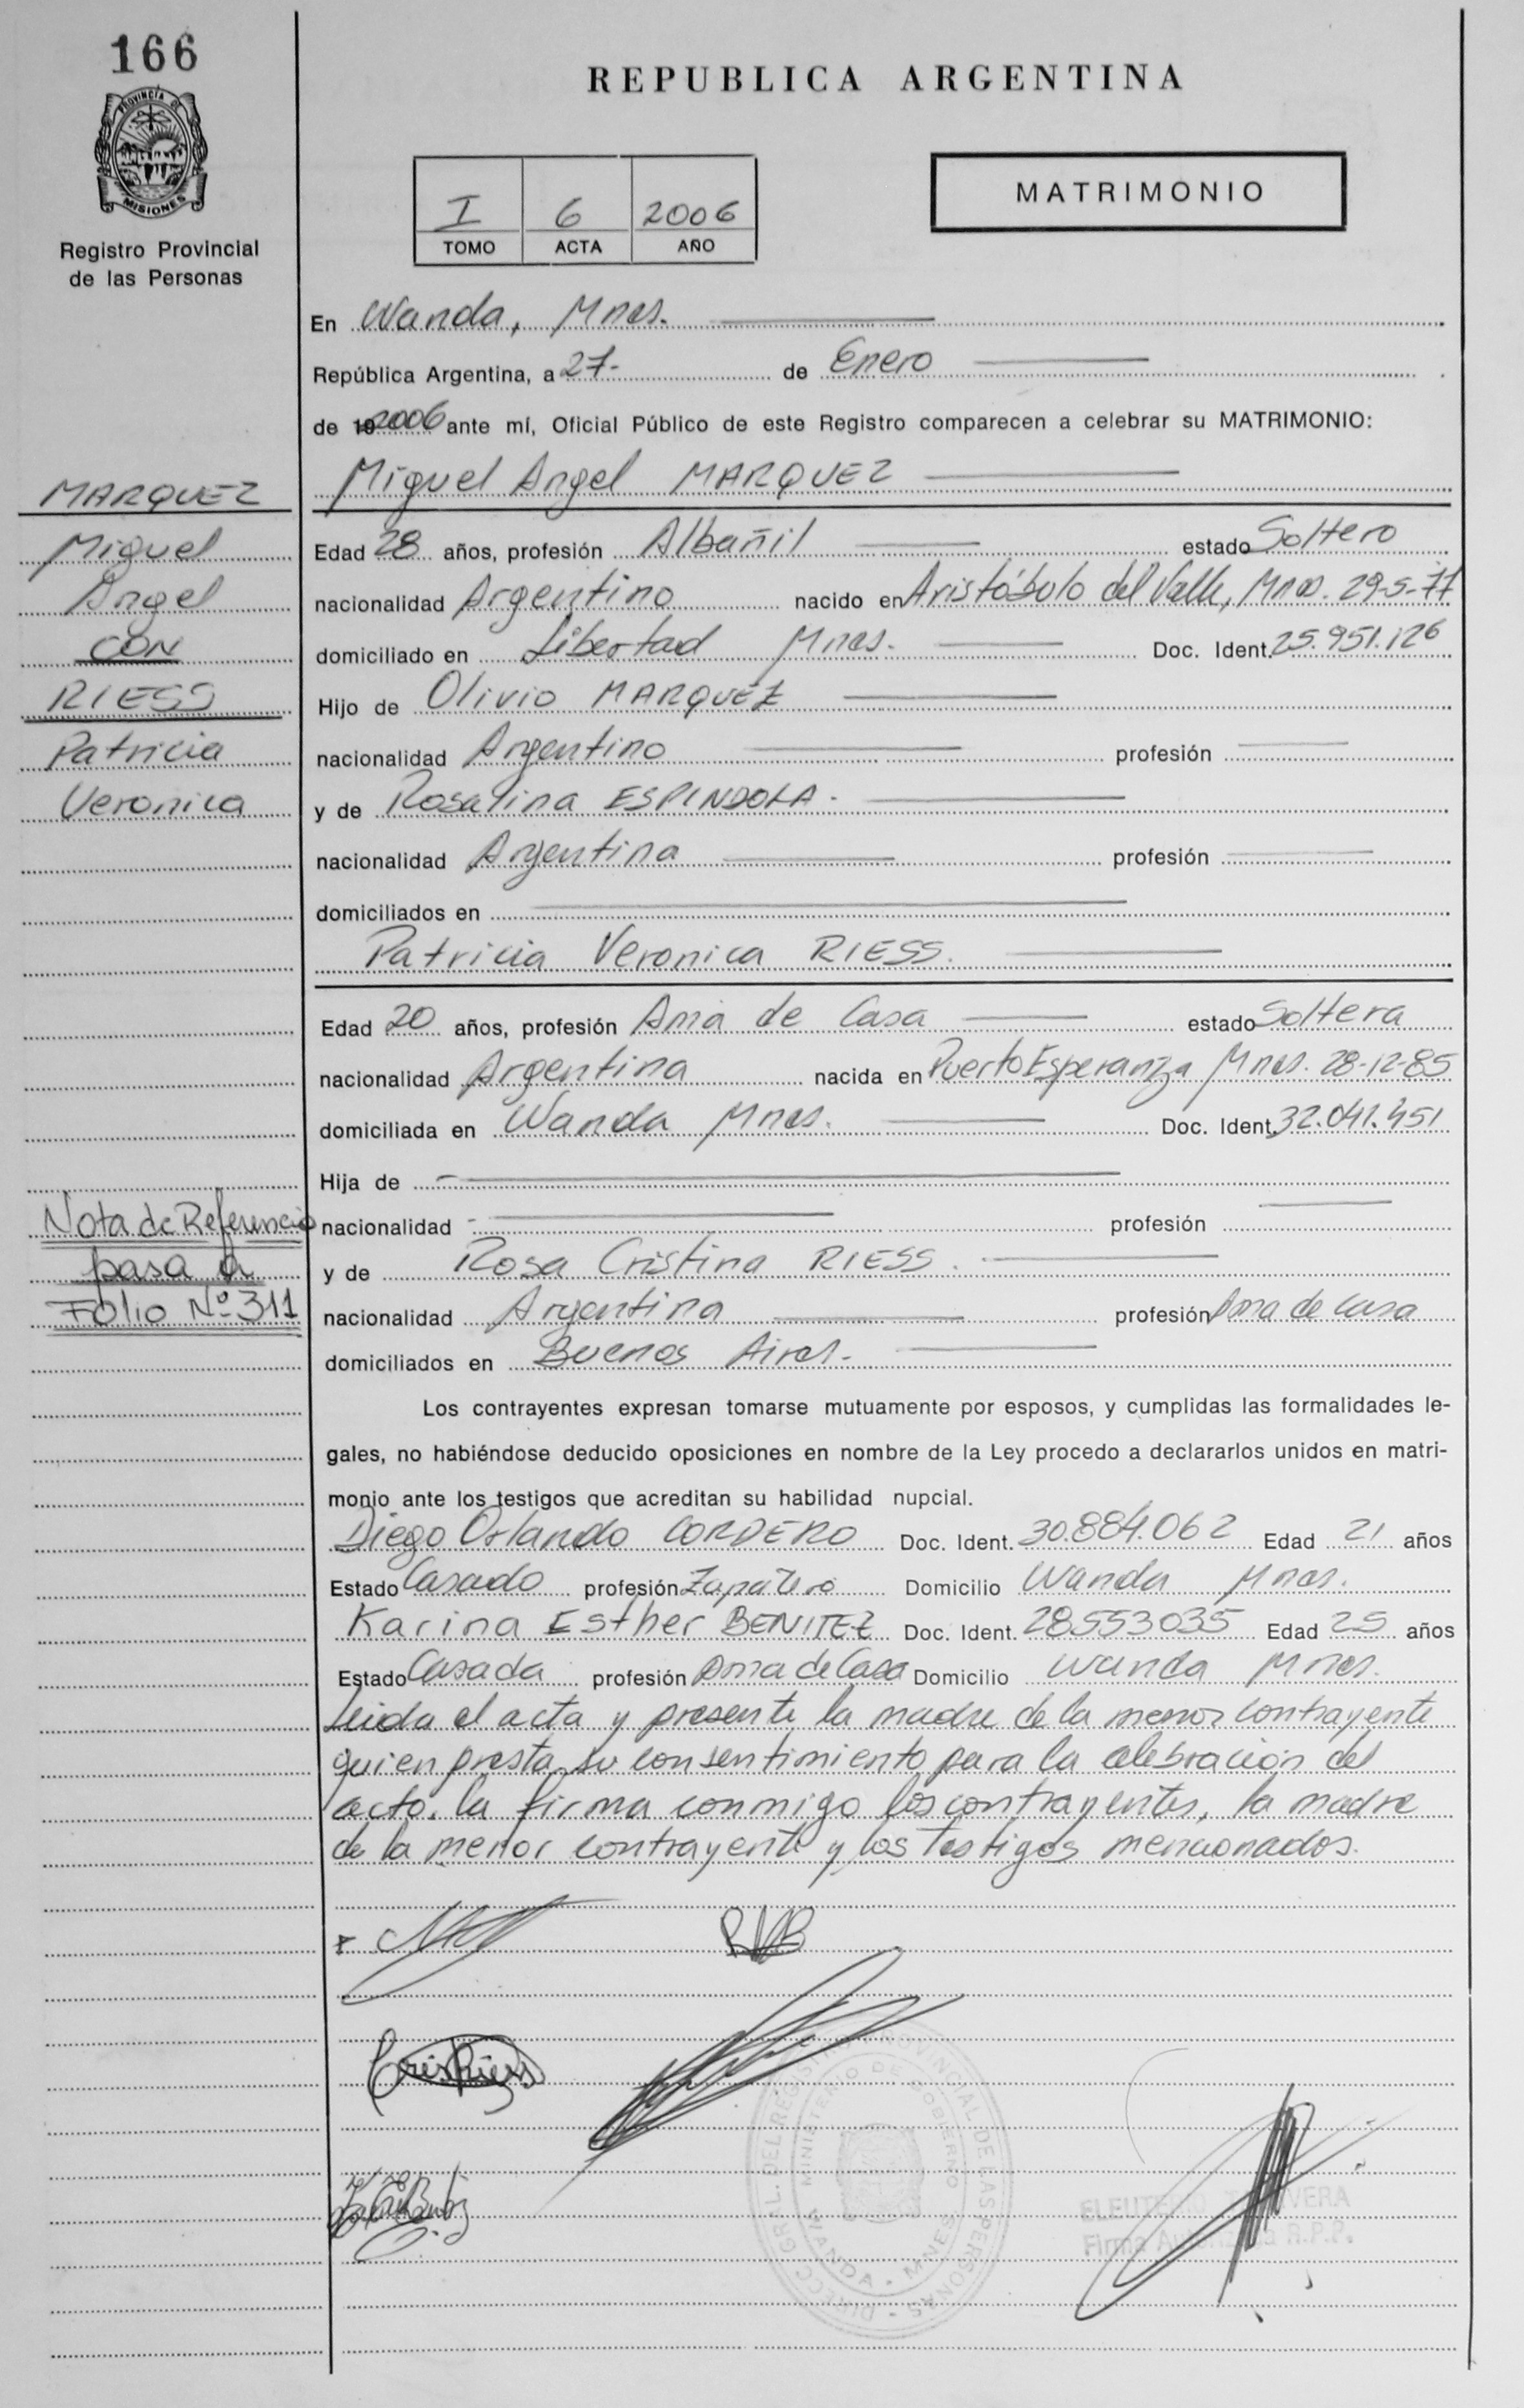 166
PROVINCIA DE
MISIONES
Registro Provincial
de las Personas
REPUBLICA ARGENTINA
I 6 2006
TOMO ACTA AÑO
MATRIMONIO
En Wanda, Mnes.
República Argentina, a 27- de Enero
de 2006 ante mí, Oficial Público de este Registro comparecen a celebrar su MATRIMONIO:
Miguel Angel MARQUEZ
MARQUEZ
Miguel
Angel
CON
RIESS
Patricia
Veronica
Edad 28 años, profesión Albañil estado Soltero
nacionalidad Argentino nacido en Aristóbolo del Valle, Mnes. 29-5-77
domiciliado en Libertad Mnes. Doc. Ident. 25.951.126
Hijo de Olivio MARQUEZ
nacionalidad Argentino profesión
y de Rosalina ESPINDOLA.
nacionalidad Argentina profesión
domiciliados en
Patricia Veronica RIESS.
Edad 20 años, profesión Ama de Casa estado Soltera
nacionalidad Argentina nacida en Puerto Esperanza Mnes. 28-12-85
domiciliada en Wanda Mnes. Doc. Ident. 32.041.451
Hija de
nacionalidad profesión
y de Rosa Cristina RIESS.
nacionalidad Argentina profesión Ama de casa
domiciliados en Buenos Aires.
Nota de Referencia
pasa a
Folio Nº 311
Los contrayentes expresan tomarse mutuamente por esposos, y cumplidas las formalidades le-
gales, no habiéndose deducido oposiciones en nombre de la Ley procedo a declararlos unidos en matri-
monio ante los testigos que acreditan su habilidad nupcial.
Diego Orlando CORDERO Doc. Ident. 30.884.062 Edad 21 años
Estado Casado profesión Zapatero Domicilio Wanda Mnes.
Karina Esther BENITEZ Doc. Ident. 28553035 Edad 25 años
Estado Casada profesión Ama de Casa Domicilio Wanda Mnes.
Leida el acta y presente la madre de la menor contrayente
quien presta su consentimiento para la celebración del
acto. la firma conmigo los contrayentes, la madre
de la menor contrayente y los testigos mencionados.
DIRECC. GRAL. DEL REGISTRO PROVINCIAL DE LAS PERSONAS
MINISTERIO DE GOBIERNO
WANDA - MNES
Firma Autorizada R.P.P.